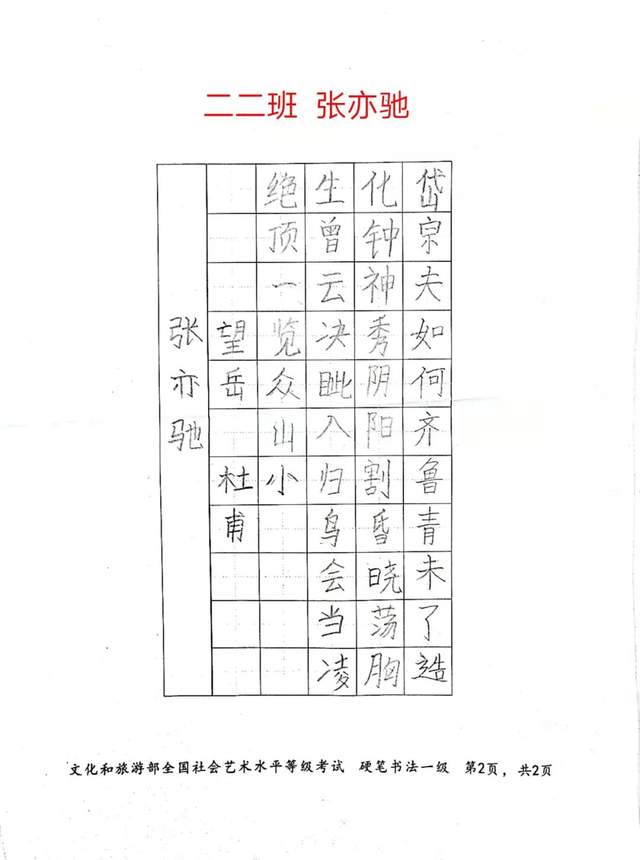 二二班 张亦驰
岱宗夫如何齐鲁青未了造
化钟神秀阴阳割昏晓荡胸
生曾云决眦入归鸟会当凌
绝顶一览众山小
望岳 杜甫
张亦驰
文化和旅游部全国社会艺术水平等级考试 硬笔书法一级 第2页，共2页